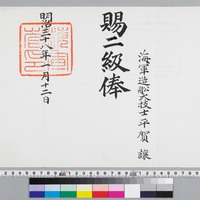 海軍造船大技士平賀 譲
賜二級俸
明治三十八年一月十二日